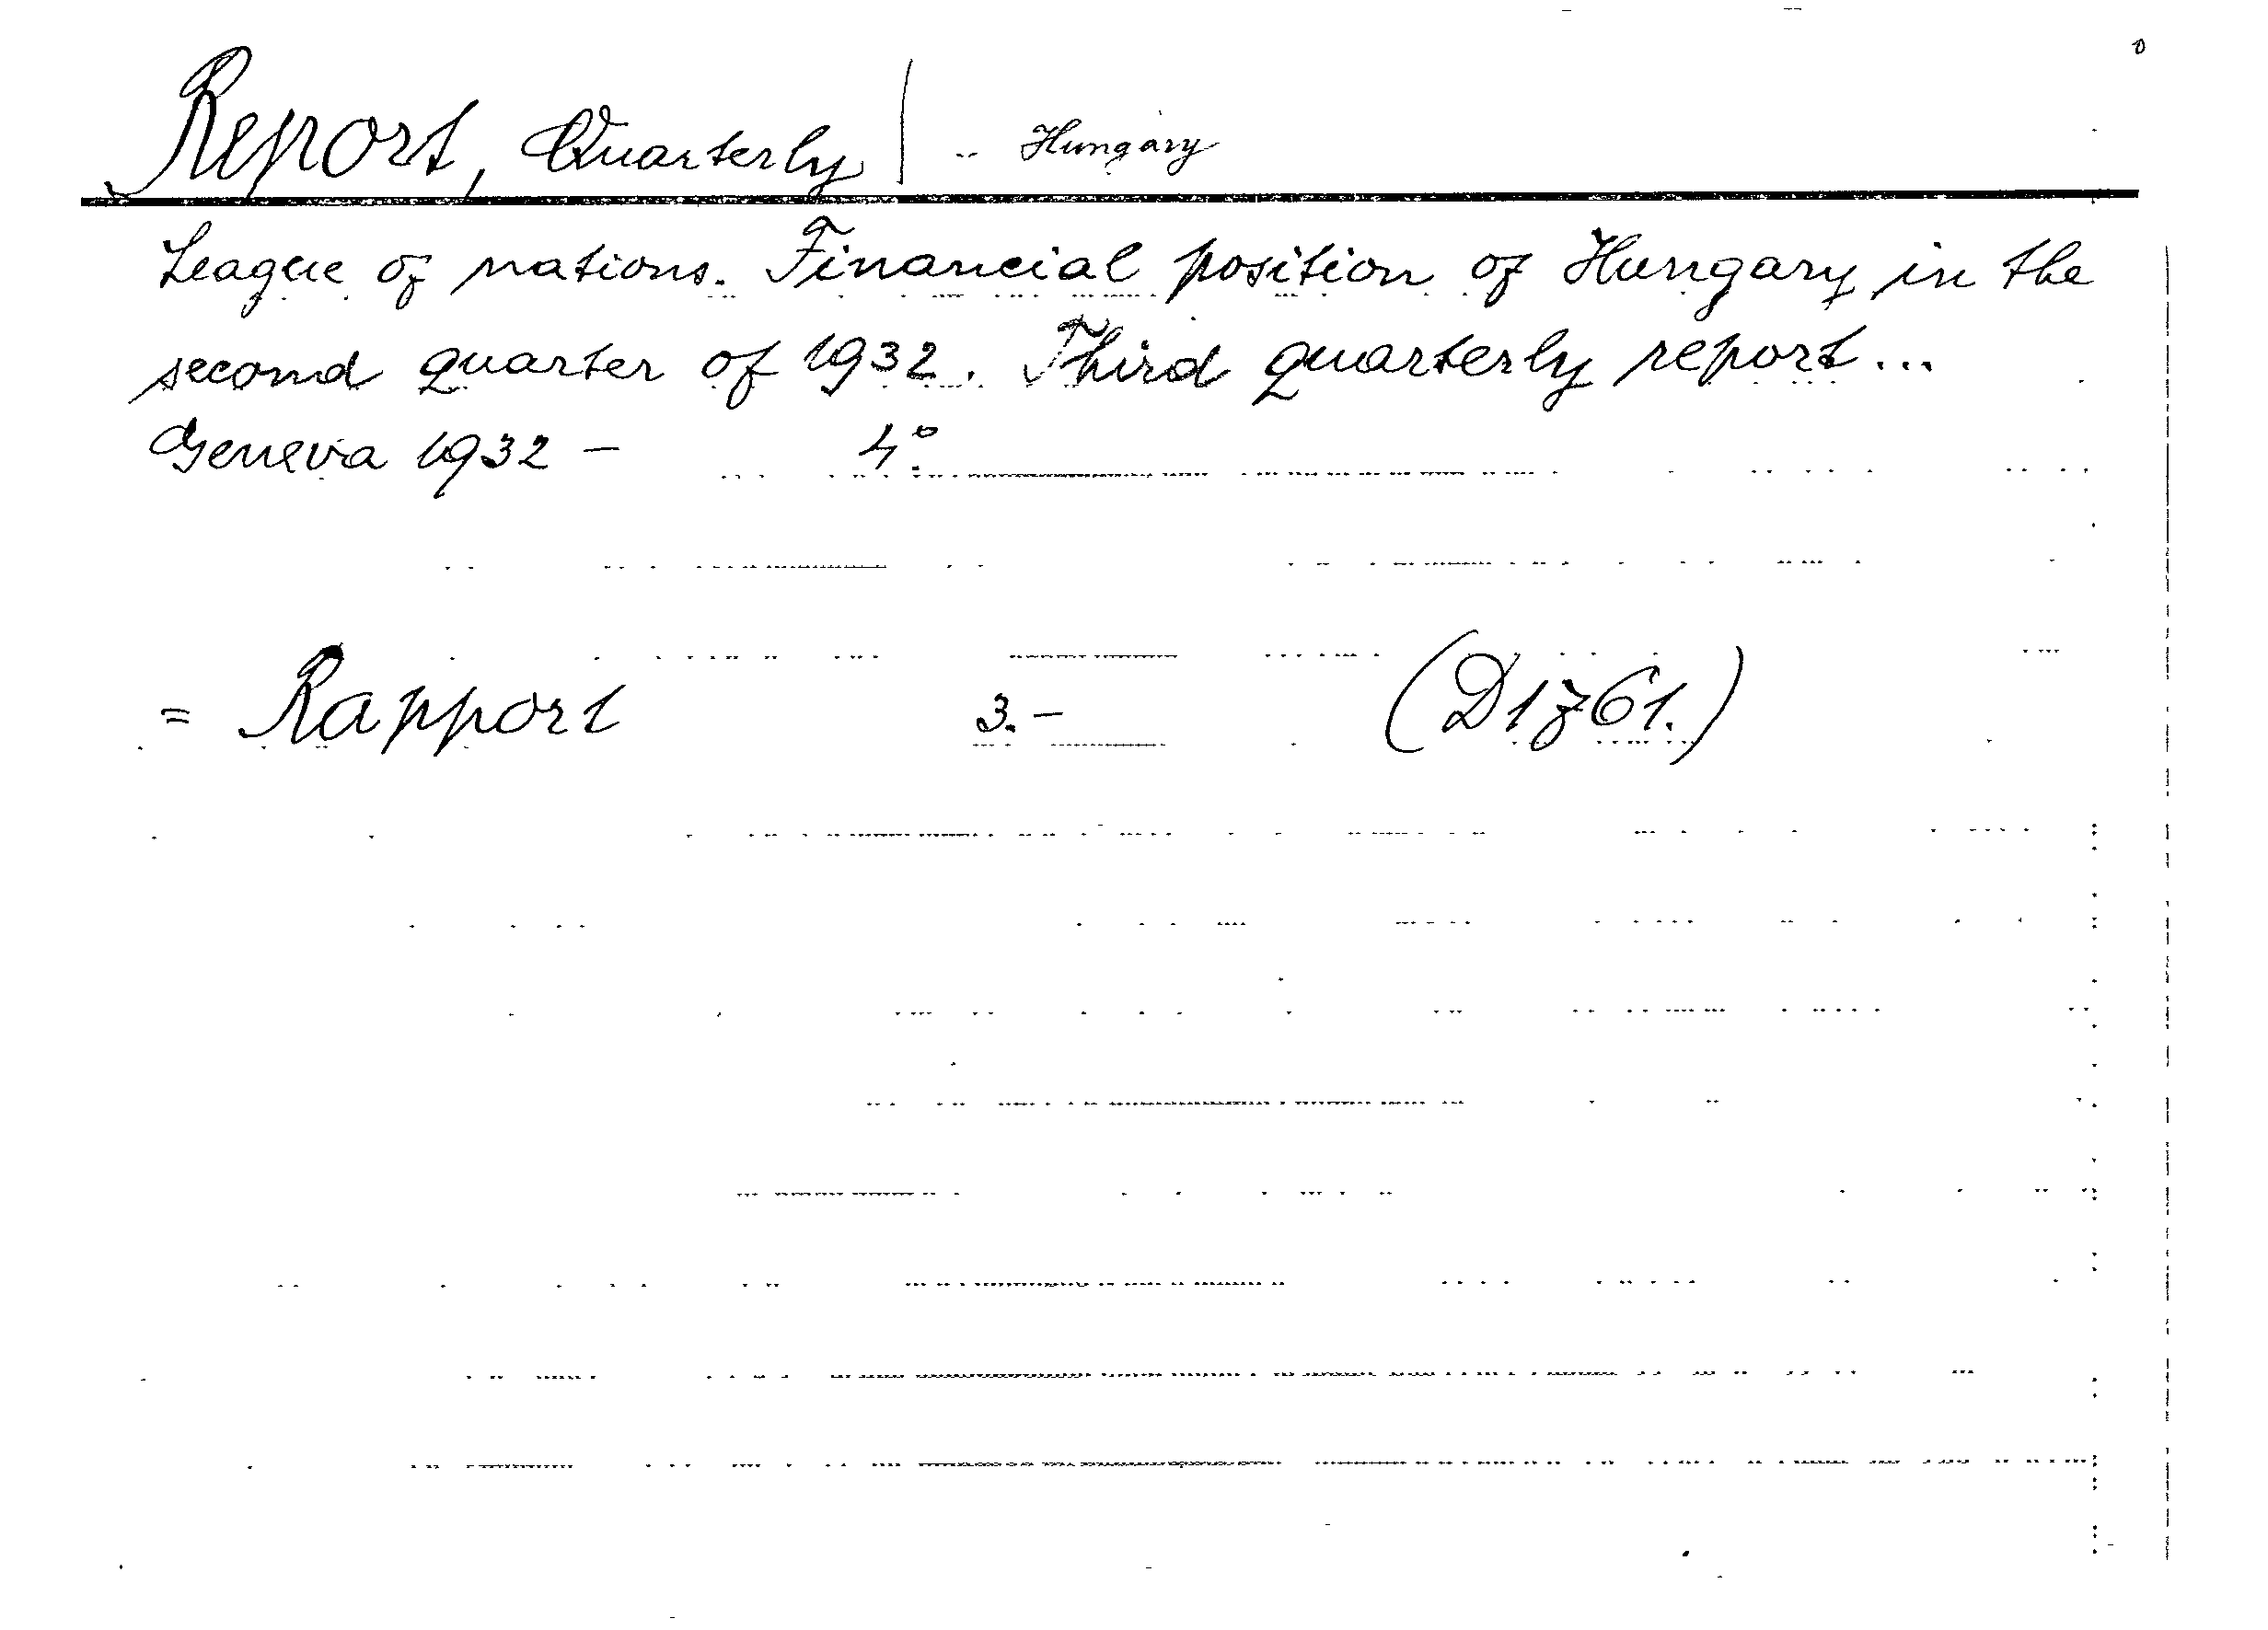 Report, Quarterly | .. Hungary
League of nations. Financial position of Hungary in the
second quarter of 1932. Third quarterly report...
Geneva 1932 - 4°.
= Rapport 3.- (D1z61.)